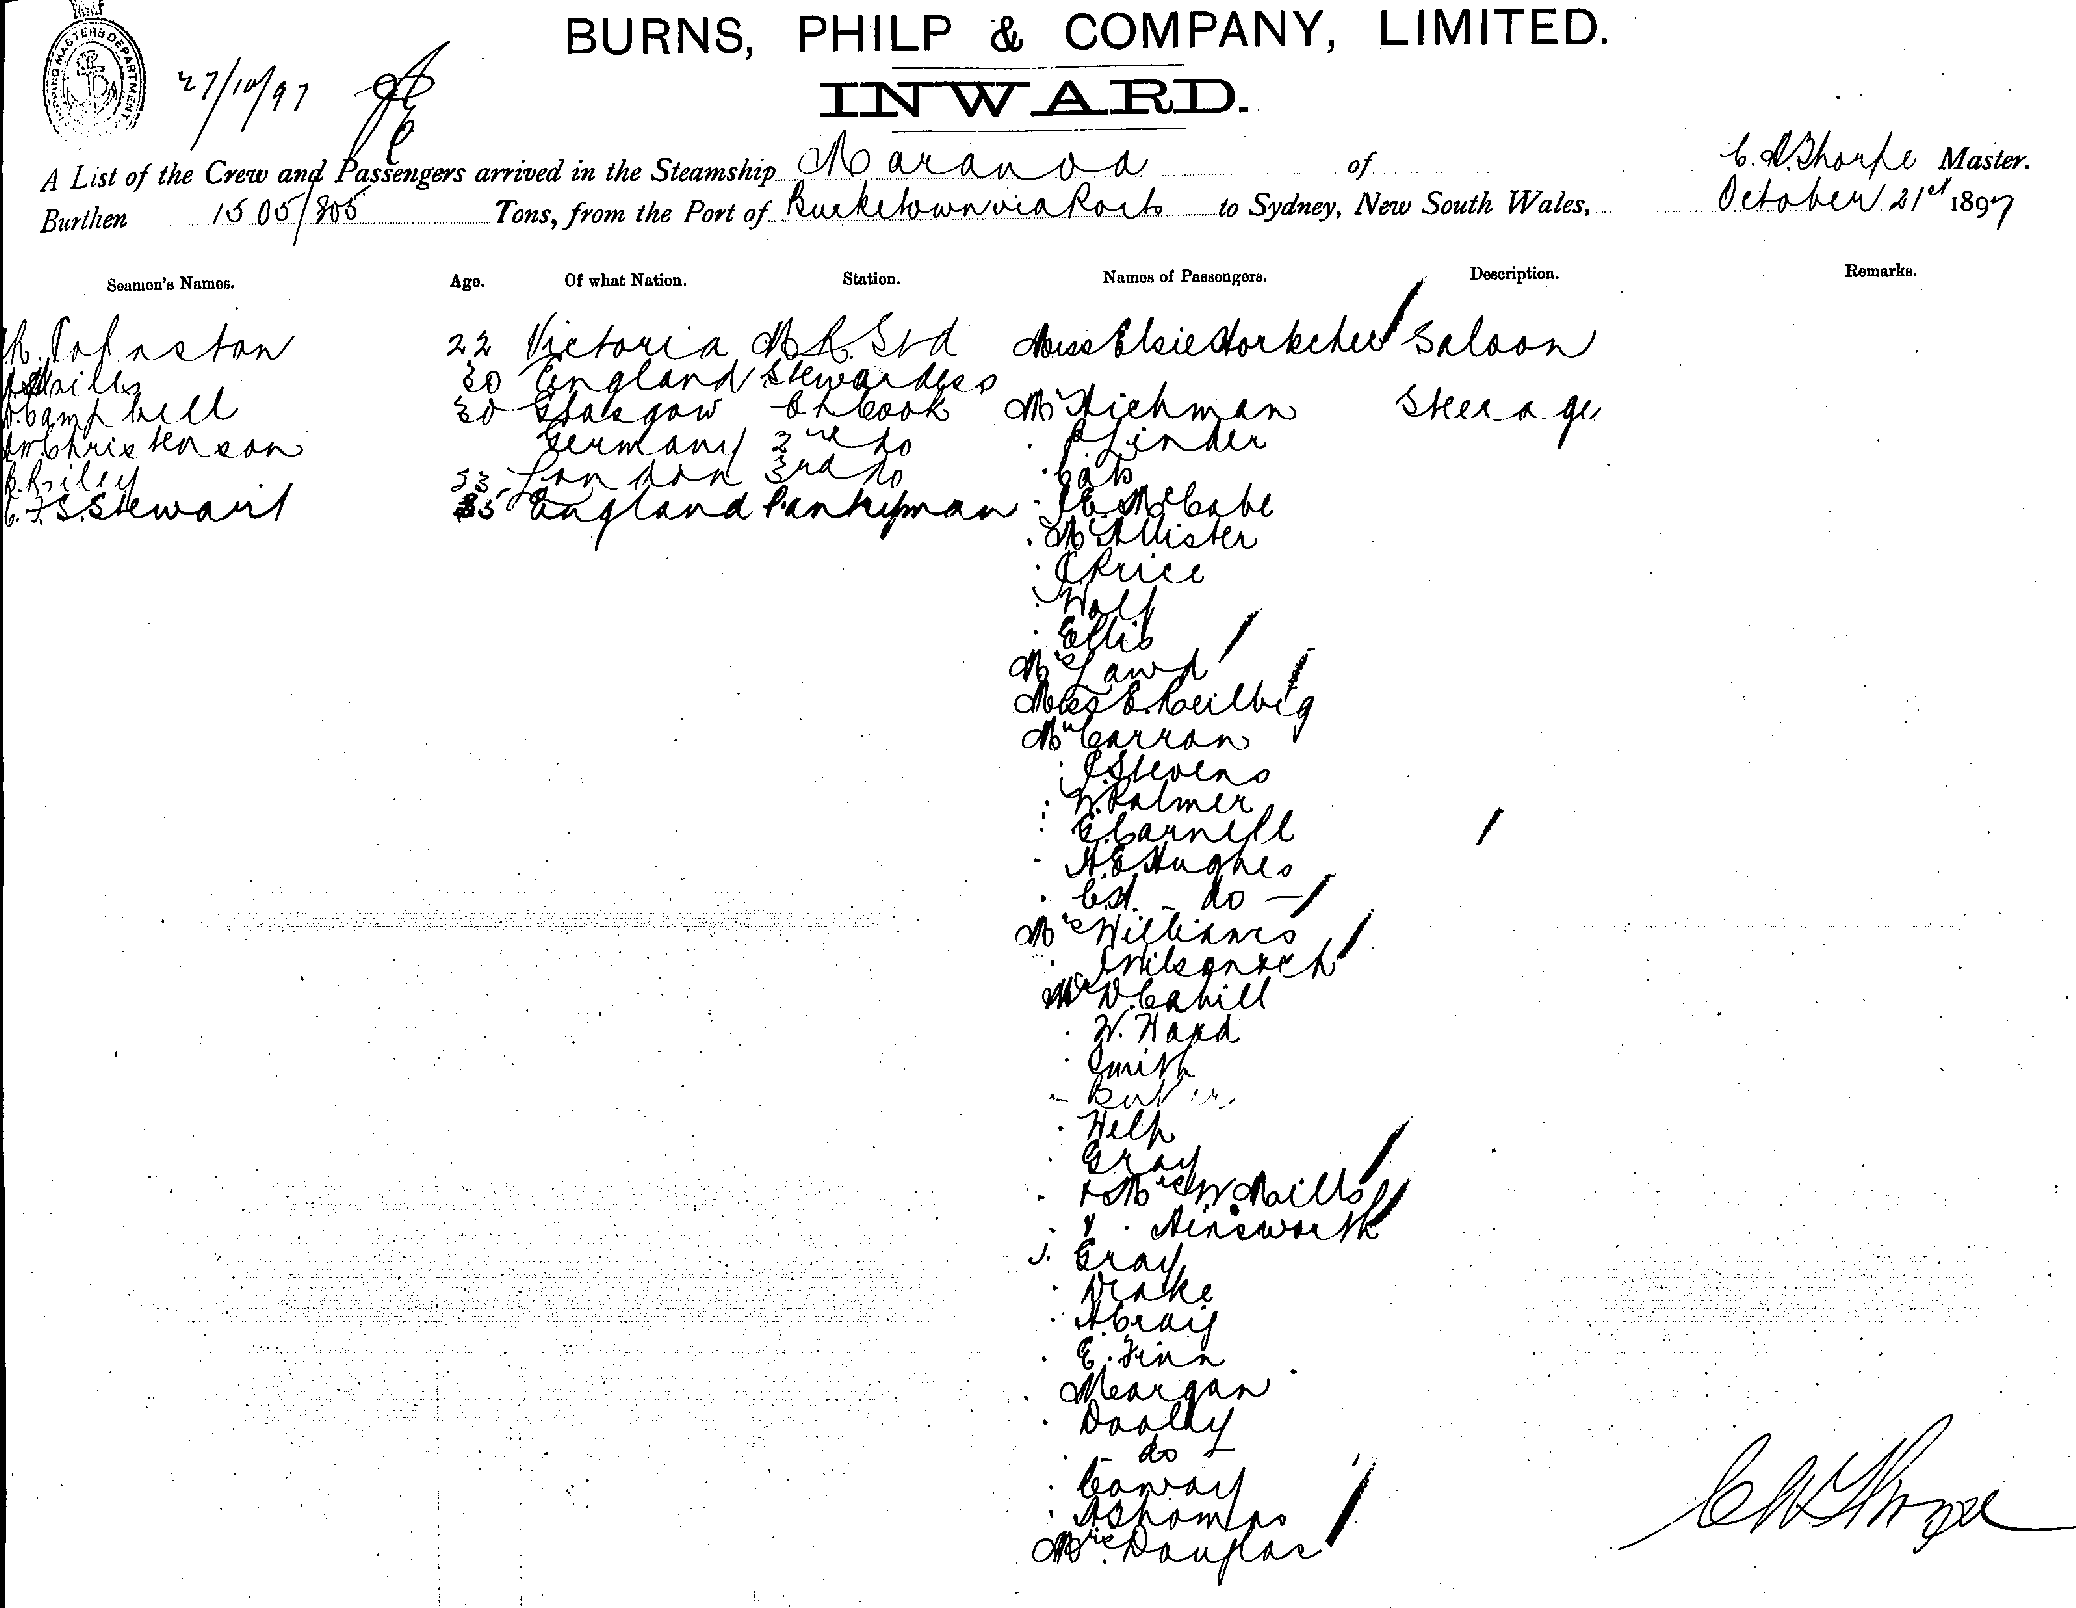 BURNS, PHILP & COMPANY, LIMITED.
INWARD.
27/10/97
A List of the Crew and Passengers arrived in the Steamship Maranoa of C. A. Thorpe Master.
Burthen 1505/805 Tons, from the Port of Burketown via Ports to Sydney, New South Wales, October 21st 1897
Seamen's Names. Age. Of what Nation. Station. Names of Passengers. Description. Remarks.
Johnston 22 Victoria M.R. Std Miss Elsie Saloon
Mills 30 England Stewardess
Campbell 30 Glasgow Ch Cook Mr Hichman Steerage
Christenson Germany 2nd do Linder
Riley 23 London 3rd do
S. Stewart 35 England Pantryman McCabe
McAllister
Price
Wolf
Ellis
Mrs
Miss E. Heilbig
Mr Carron
J. Stevens
W. Palmer
E. Carnell
H. E. Hughes
do
Mrs Williams
Mr D. Cahill
W. Hood
Smith
Gray
& Mrs W Mills
Ainsworth
Gray
Drake
A. Craig
E. Finn
Meargan
Dooley
do
Conway
Mrs. Douglas